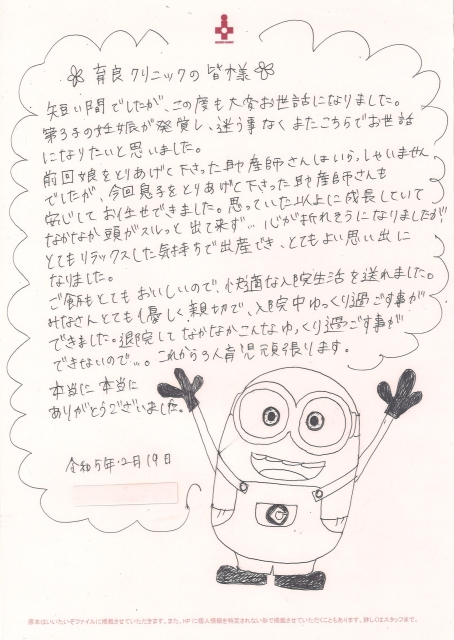 育良クリニックの皆様
短い間でしたが、この度も大変お世話になりました。
第3子の妊娠が発覚し、迷う事なくまたこちらでお世話
になりたいと思いました。
前回娘をとりあげて下さった助産師さんはいらっしゃいません
でしたが、今回息子をとりあげて下さった助産師さんも
安心してお任せできました。思っていた以上に成長していて
なかなか頭がスルッと出て来ず…心が折れそうになりましたが!
とてもリラックスした気持ちで出産でき、とてもよい思い出に
なりました。
ご飯もとてもおいしいので、快適な入院生活を送れました。
みなさんとても優しく親切で、入院中ゆっくり過ごす事が
できました。退院してなかなかこんなゆっくり過ごす事が
できないので…。これから3人育児頑張ります。
本当に本当に
ありがとうございました。
令和5年2月19日
原本はいいたいぞファイルに掲載させていただきます。また、HPに個人情報を特定されない形で掲載させていただくこともあります。詳しくはスタッフまで。